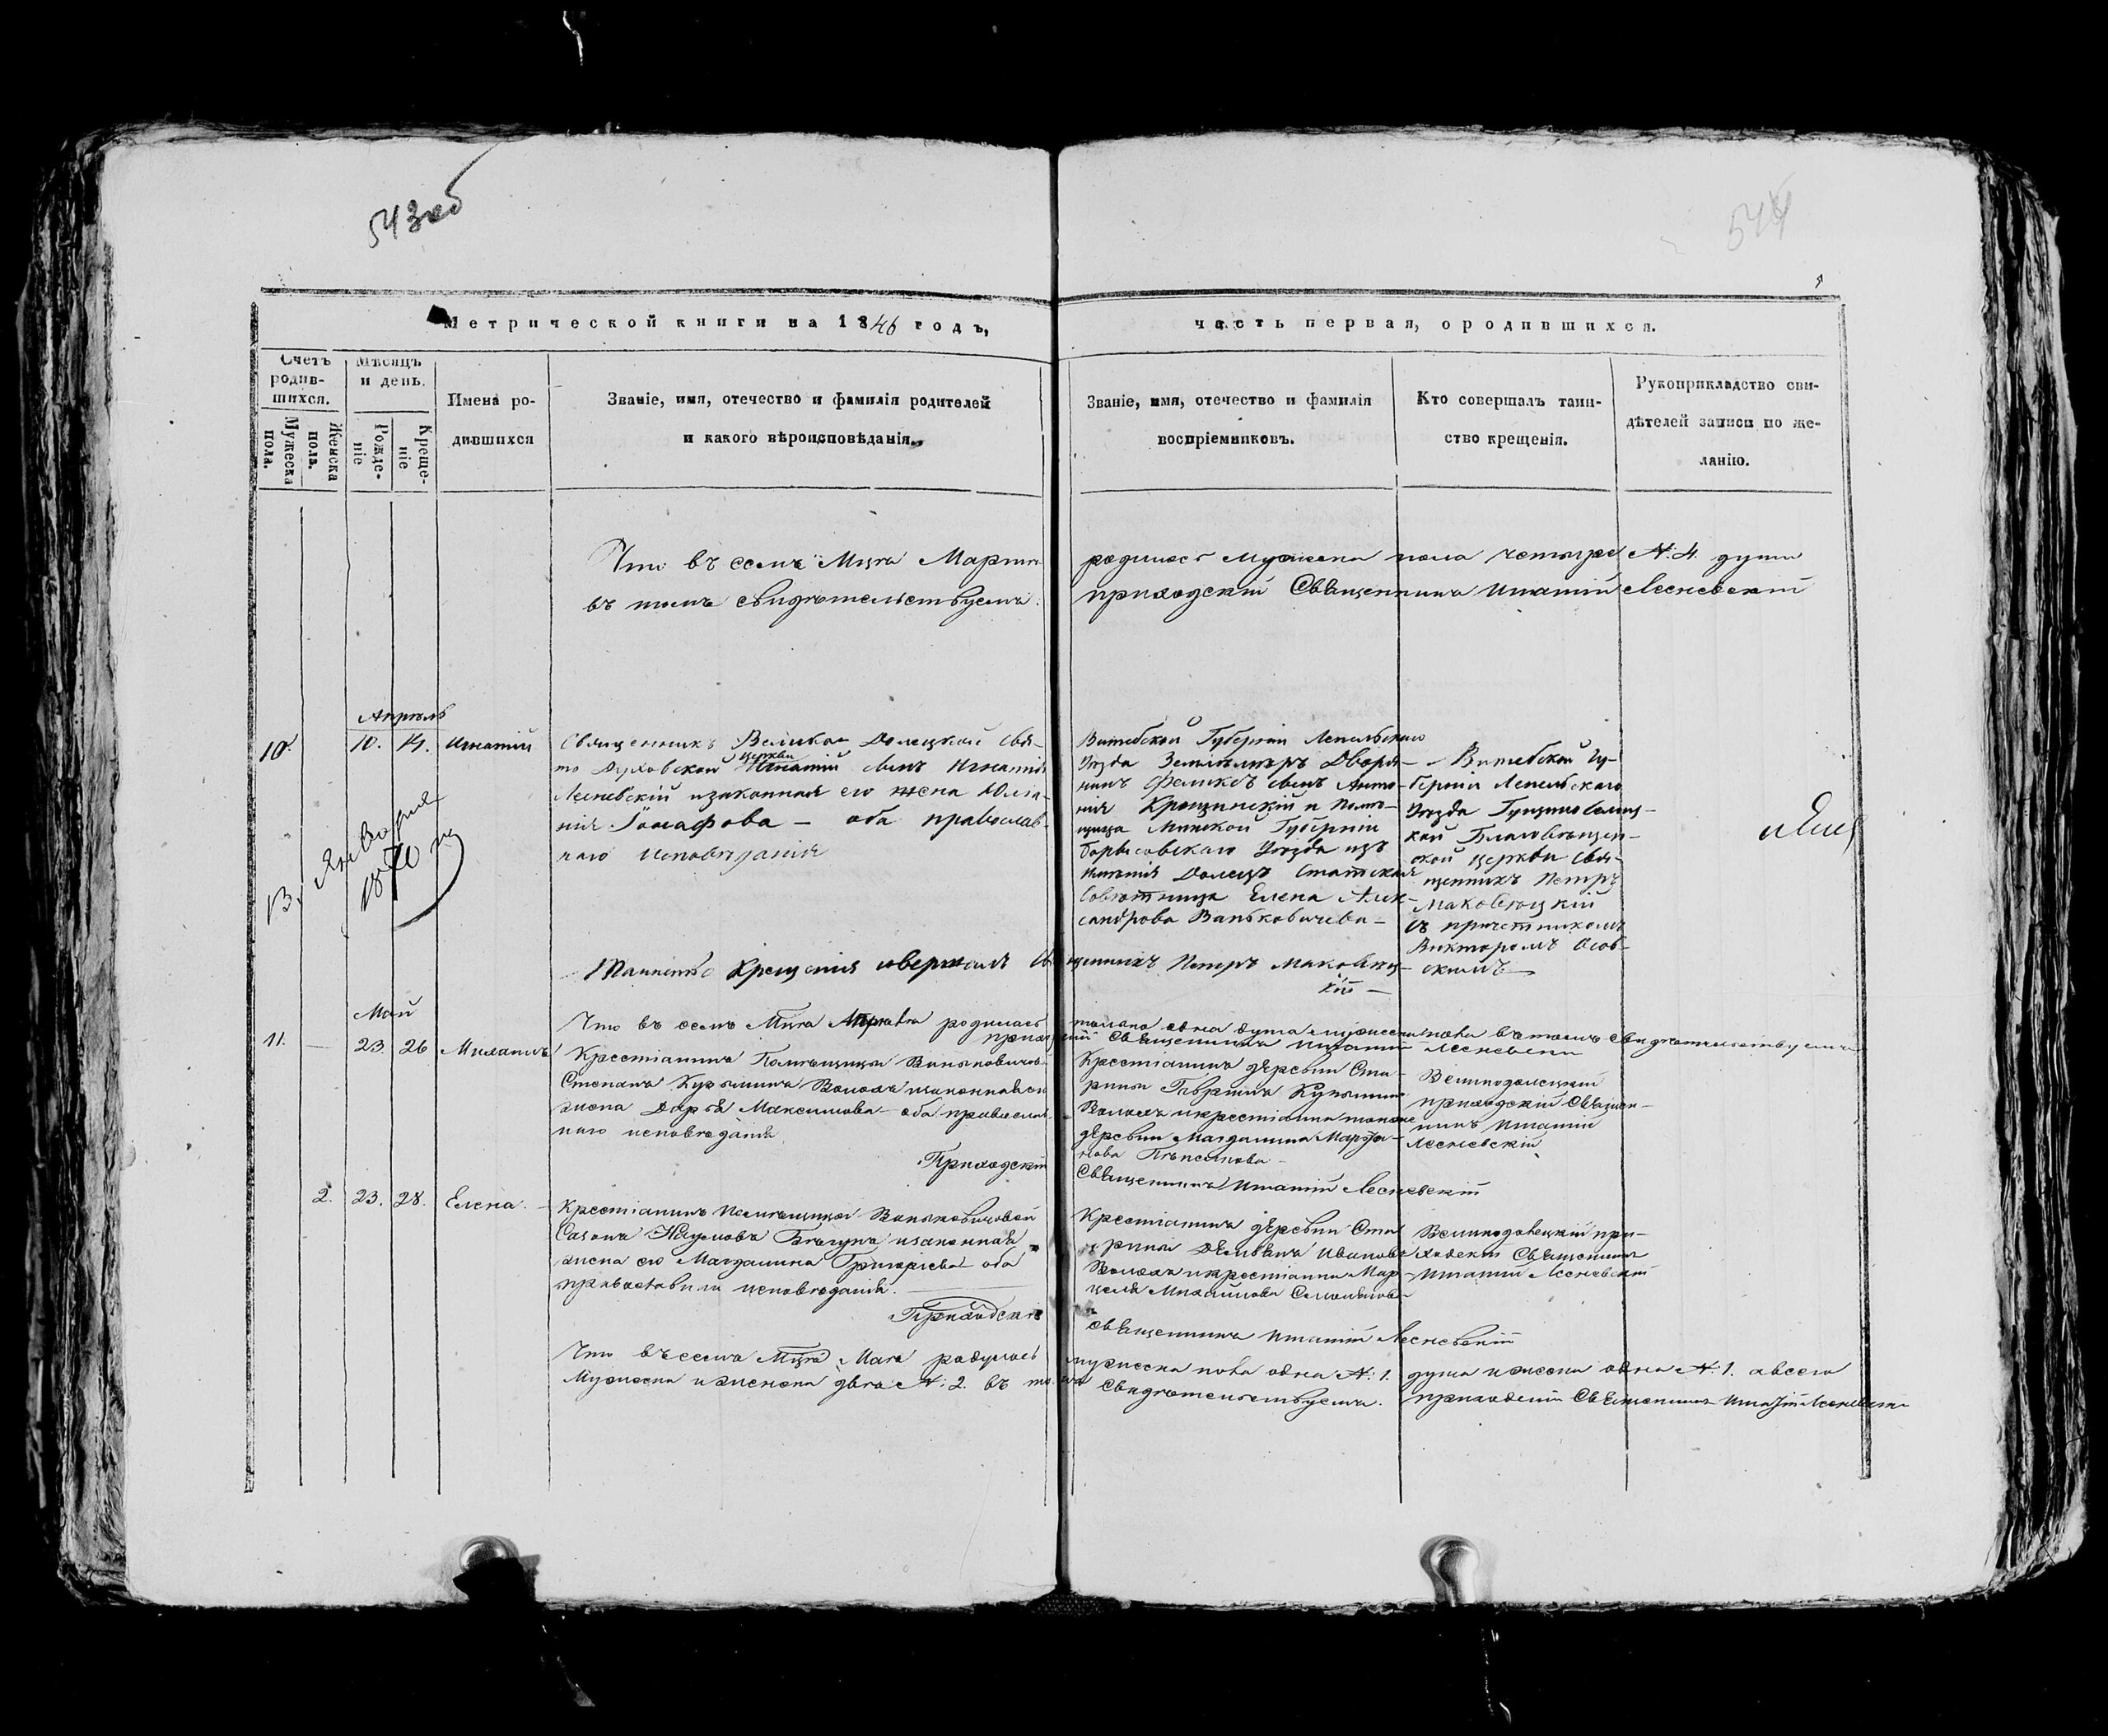 543 об
544
Метрической книги на 1846 годъ,
часть первая, о родившихся.
Счетъ родив-шихся.
Мужеска пола.
Женска пола.
Мѣсяцъ и день.
Рожде-ніе
Креще-ніе
Имена ро-
дившихся
Званіе, имя, отечество и фамилія родителей
и какого вѣроисповѣданія.
Званіе, имя, отечество и фамилія
воспріемниковъ.
Кто совершалъ таин-
ство крещенія.
Рукоприкладство сви-
дѣтелей записи по же-
ланію.
Что въ семъ Мцѣ Мартѣ родилось мужеска пола четыре N. 4. души
въ томъ свидѣтельствуемъ. приходскій Священникъ Игнатій Лесневскій
Апрѣль
10. 10. 14. Игнатій
Священникъ Велико Долецкой Свя-
то Духовской церкви Игнатій сынъ Игнатія
Лесневскій и законная его жена Юлія-
нія Іоасафова — оба православ-
наго исповѣданія
Витебской Губерніи Лепельскаго
Уѣзда Землемѣръ Дворя-
нинъ Феликсъ сынъ Анто-
нія Крощинскій и Помѣ-
щица Минской Губерніи
Борисовскаго Уѣзда изъ
имѣнія Долецъ Статская
Совѣтница Елена Алек-
сандрова Ваньковичева —
Витебской Гу-
берніи Лепельскаго
Уѣзда
кой Благовѣщен-
ской церкви Свя-
щенникъ Петръ
Маковецкій
съ причетникомъ
Викторомъ Осов-
скимъ —
Января
1870
Таинство Крещенія совершалъ Священникъ Петръ Маковец-
кій —
Что въ семъ Мцѣ Апрѣлѣ родилась только одна душа мужеска пола въ томъ свидѣтельствуемъ
приходскій Священникъ Игнатій Лесневскій
Май
11. — 23. 26 Михаилъ
Крестіанинъ Помѣщицы Ваньковичев.
Степанъ Кузьминъ Волохъ и законная его
жена Дарья Максимова — оба православ-
наго исповѣданія
Крестіанинъ деревни Ста-
рины Гавріилъ Кузьминъ
Волохъ и крестіанка тойже
деревни Магдалина Марфа-
нова —
Великодолецкій
приходскій Священ-
никъ Игнатій
Лесневскій
Приходскій Священникъ Игнатій Лесневскій
2. 23. 28. Елена. —
Крестіанинъ Помѣщицы Ваньковичовой
Сазонъ Наумовъ и законная
жена его Магдалина Григорьева оба
православнаго исповѣданія.
Крестіанинъ деревни Ста-
рины Демьянъ Ивановъ
Волохъ и крестіанка Мар-
целя Михайлова
Великодолецкій при-
ходскій Священникъ
Игнатій Лесневскій
Приходскій Священникъ Игнатій Лесневскій
Что въ семъ Мцѣ Маѣ родилось мужеска пола одна N. 1. душа и женска одна N. 1. а всего
Мужеска и женска двѣ N: 2. въ томъ Свидѣтельствуемъ. приходскій Священникъ Игнатій Лесневскій